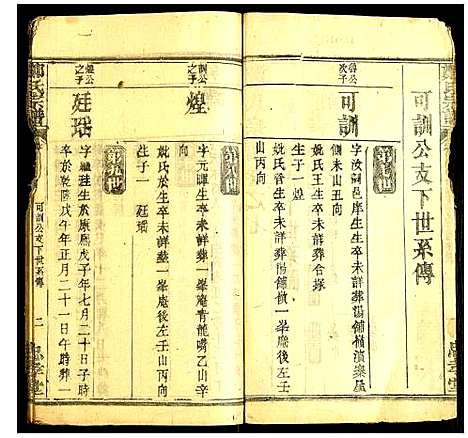 可訓公支下世系傳
第七世
魯公次子
可訓
字汝詞邑庠生生卒未詳葬湯舖橫濵欒屋
側未山丑向
妣氏王生卒未詳葬合塚
生子一煌
妣氏曾生卒未詳葬湯舖嶺一峯庵後左壬
山丙向
第八世
訓公之子
煌
字元暉生卒未詳葬一峯庵青龍嘴乙山辛
向
妣氏於生卒未詳葬一峯庵後左壬山丙向
生子一 廷瑶
第九世
煌公之子
廷瑶
字繼珪生於康熙戊子年七月二十日子時
卒於乾隆戊午年正月二十一日午時葬一
鄭氏宗譜
可訓公支下世系傳
二
忠孝堂